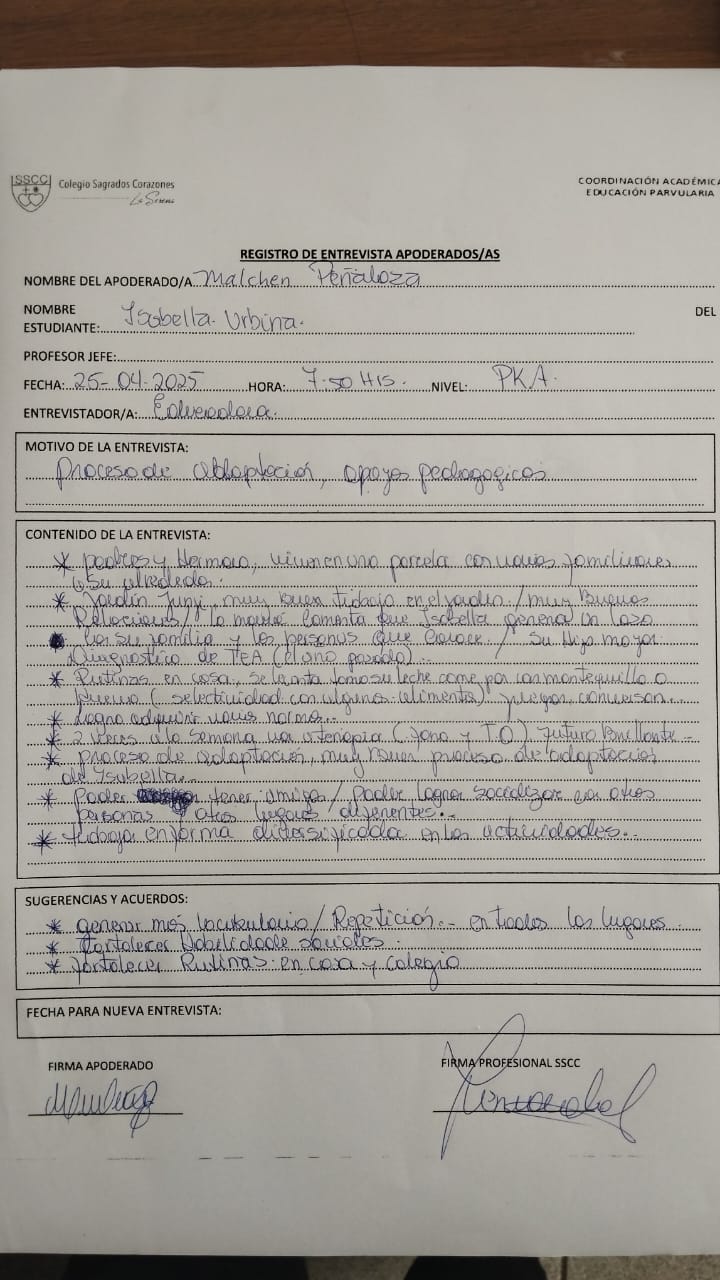 SSCC
Colegio Sagrados Corazones
La Serena
COORDINACIÓN ACADÉMICA
EDUCACIÓN PARVULARIA
REGISTRO DE ENTREVISTA APODERADOS/AS
NOMBRE DEL APODERADO/A Malchen Peñaloza
NOMBRE DEL
ESTUDIANTE: Isabella Urbina.
PROFESOR JEFE:
FECHA: 25-04-2025 HORA: 7:50 Hrs. NIVEL: PKA.
ENTREVISTADOR/A: Educadora.
MOTIVO DE LA ENTREVISTA:
Proceso de adaptación, apoyos pedagogicos
CONTENIDO DE LA ENTREVISTA:
* padres y Hermano, viven en una parcela con varios familiares
a su alrededor.
* Jardín Junji, muy buen trabajo en el jardin / muy Buenos
Relaciones / la mamá comenta que Isabella genera un lazo
con su familia y las personas que conoce. / Su Hijo mayor
Diagnostico de TEA (el año pasado)..
* Rutinas en casa, se levanta toma su leche come pan con mantequilla o
huevo (selectividad con algunos alimento) juegan, conversan.
* Logra adquirir normas..
* 2 veces a la semana va a terapia (fono y TO) Futuro Brillante
* proceso de adaptación, muy buen proceso de adaptacion
de Ysabella..
* Poder tener amigos / Poder lograr socializar con otros
personas y otros lugares diferentes..
* trabaja en forma diversificada en las actividades..
SUGERENCIAS Y ACUERDOS:
* generar más vocabulario / Repetición.. en todos los lugares.
* Fortalecer Habilidade sociales.
* fortalecer Rutinas en casa y colegio
FECHA PARA NUEVA ENTREVISTA:
FIRMA APODERADO
FIRMA PROFESIONAL SSCC